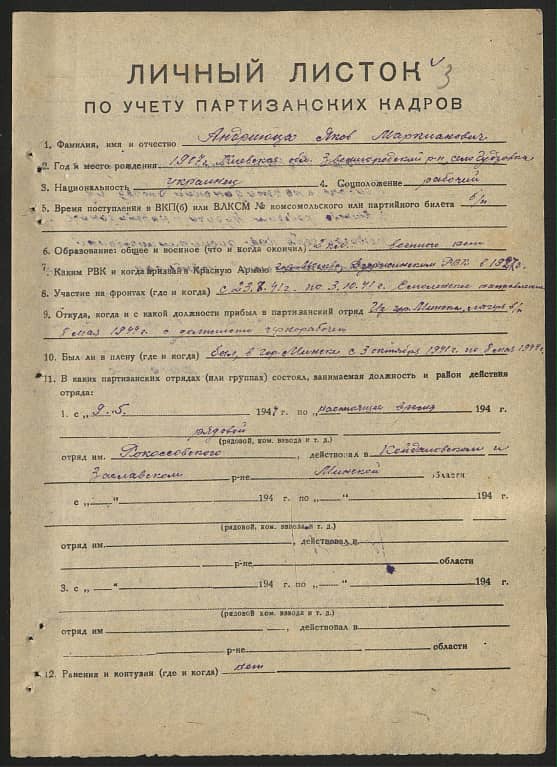 3
ЛИЧНЫЙ ЛИСТОК
ПО УЧЕТУ ПАРТИЗАНСКИХ КАДРОВ
1. Фамилия, имя и отчество Яков Маркианович
2. Год и место рождения 1907 г. Киевская обл. Звенигородский р-н, село Гудзовка
3. Национальность украинец 4. Соцположение рабочий
5. Время поступления в ВКП(б) или ВЛКСМ № комсомольского или партийного билета б/п
6. Образование: общее и военное (что и когда окончил) военного нет
7. Каким РВК и когда призван в Красную Армию РВК в
8. Участие на фронтах (где и когда) с по 3.10.41 г. Смоленское направление
9. Откуда, когда и с какой должности прибыл в партизанский отряд Из гор. Минска,
8 мая 1944 г. с должности чернорабочей
10. Был ли в плену (где и когда) был, в гор. Минске с 3 октября 1941 г. по 8 мая 1944 г.
11. В каких партизанских отрядах (или группах) состоял, занимаемая должность и район действия
отряда:
1. с „ 9.5. 1944 г. по „настоящее время 194 г.
рядовой
(рядовой, ком. взвода и т. д.)
отряд им. Рокоссовского, действовал в Койдановском и
Заславском р-не Минской области
с „ — “ 194 г. по „ — “ 194 г.
(рядовой, ком. взвода и т. д.)
отряд им. , действовал в
р-не области
3. с „ — “ 194 г. по „ — “ 194 г.
(рядовой, ком. взвода и т. д.)
отряд им , действовал в
р-не области
12. Ранения и контузии (где и когда) нет